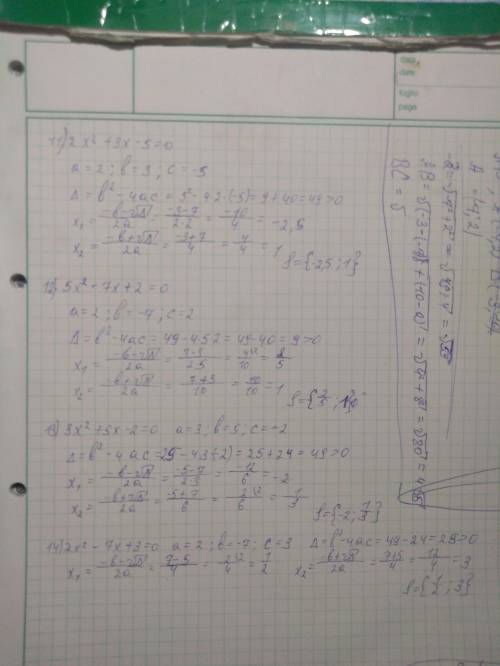 data
date
logro
page
11) 2x² + 3x - 5 = 0
a = 2 ; b = 3 ; c = -5
Δ = b² - 4ac = 3² - 4·2·(-5) = 9 + 40 = 49 > 0
x₁ = (-b-√Δ)/2a = (-3-7)/2·2 = -10/4 = -2,5
x₂ = (-b+√Δ)/2a = (-3+7)/4 = 4/4 = 1
S = {-2,5 ; 1}
12) 5x² - 7x + 2 = 0
a = 2 ; b = -7 ; c = 2
Δ = b² - 4ac = 49 - 4·5·2 = 49 - 40 = 9 > 0
x₁ = (-b-√Δ)/2a = (7-3)/2·5 = 4/10 = 2/5
x₂ = (-b+√Δ)/2a = (7+3)/10 = 10/10 = 1
13) 3x² + 5x - 2 = 0 a = 3 ; b = 5 ; c = -2
Δ = b² - 4ac = 25 - 4·3·(-2) = 25 + 24 = 49 > 0
x₁ = (-b-√Δ)/2a = (-5-7)/2·3 = -12/6 = -2
x₂ = (-b+√Δ)/2a = (-5+7)/6 = 2/6 = 1/3
S = {-2 ; 1/3}
14) 2x² - 7x + 3 = 0 a = 2 ; b = -7 ; c = 3 Δ = b² - 4ac = 49 - 24 = 25 > 0
x₁ = (-b-√Δ)/2a = (7-5)/4 = 2/4 = 1/2 x₂ = (-b+√Δ)/2a = (7+5)/4 = 12/4 = 3
S = {1/2 ; 3}
BC = 5